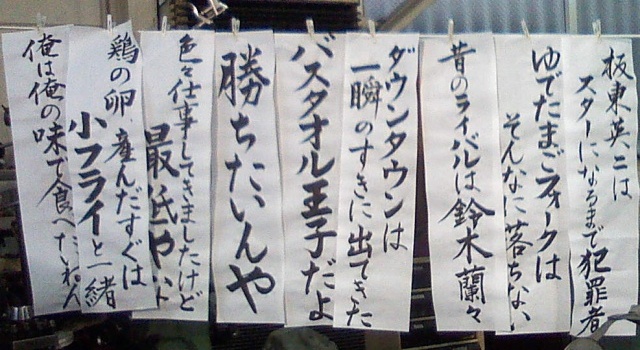 板東英二は
スターになるまで犯罪者
ゆでたまごフォークは
そんなに落ちない
昔のライバルは鈴木蘭々
ダウンタウンは
一瞬のすきに出てきた
バスタオル王子だよ
勝ちたいんや
色々仕事してきましたけど
最低やバイト
鶏の卵、産んだすぐは
小フライと一緒
俺は俺の味で食べたいねん